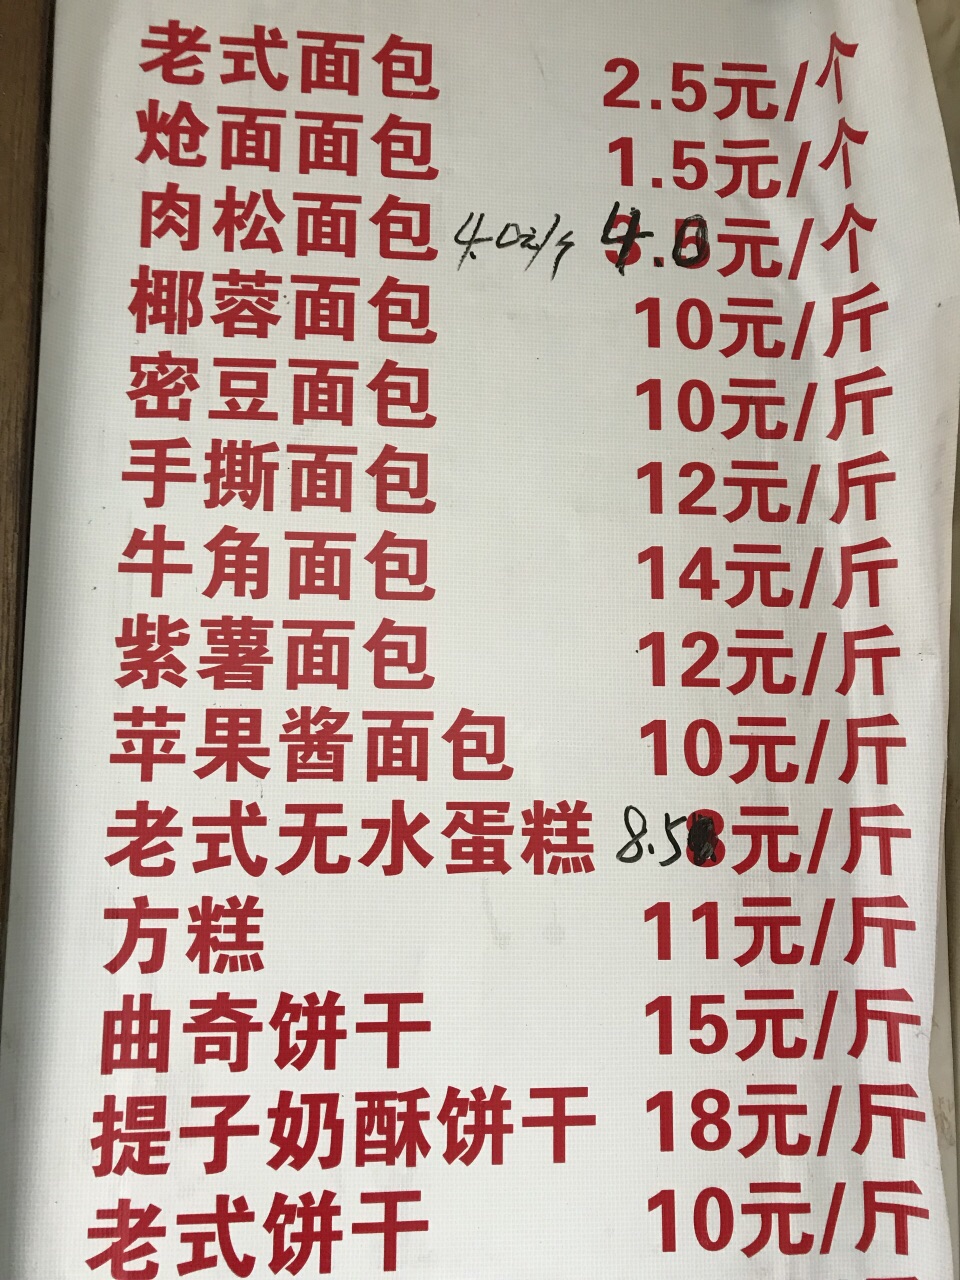 老式面包 2.5元/个
炝面面包 1.5元/个
肉松面包 4.0元/个 4.0元/个
椰蓉面包 10元/斤
密豆面包 10元/斤
手撕面包 12元/斤
牛角面包 14元/斤
紫薯面包 12元/斤
苹果酱面包 10元/斤
老式无水蛋糕 8.5元/斤
方糕 11元/斤
曲奇饼干 15元/斤
提子奶酥饼干 18元/斤
老式饼干 10元/斤